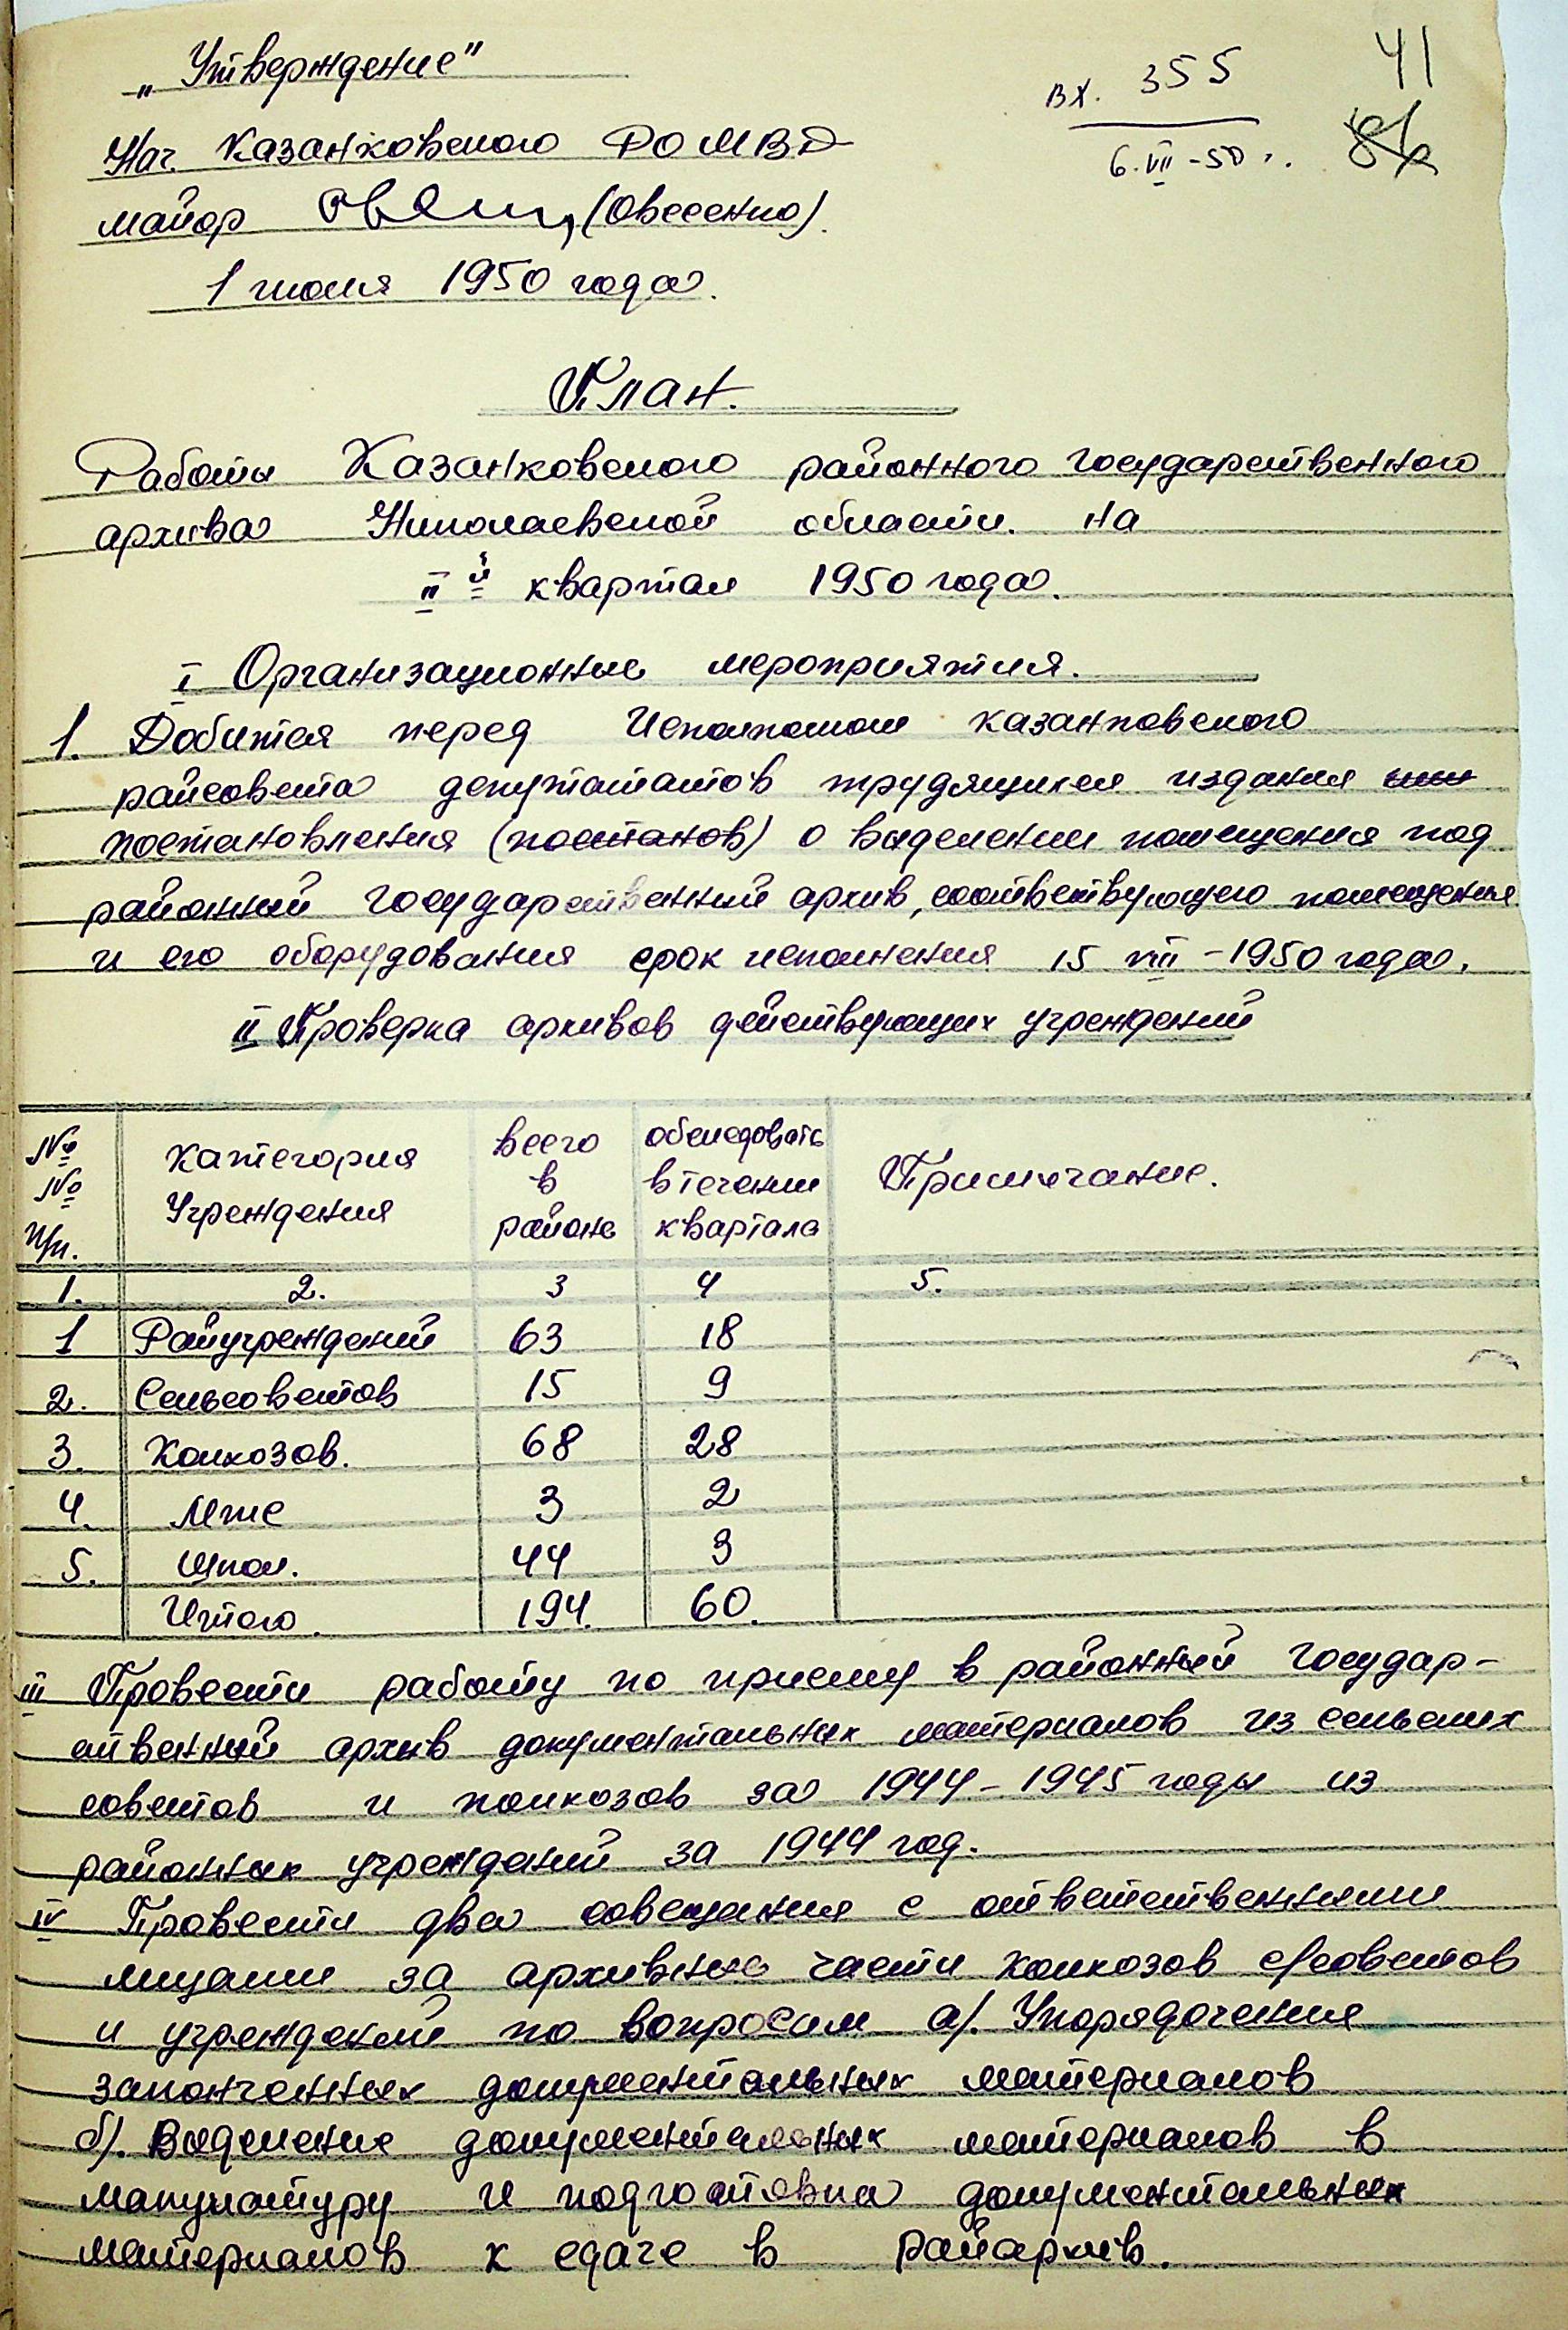 „Утверждение"
вх. 355
41
Нач. Казанковского РО МВД
6.VII-50 г.
майор (Овсеенко).
1 июля 1950 года.
План.
Работы Казанковского районного государственного
архива Николаевской области. на
II й квартал 1950 года.
I Организационные мероприятия.
1. Добится перед Исполкомом Казанковского
райсовета депутататов трудящихся издания
постановления (постанов) о выделении помещения под
районный государственный архив, соответствующего помещения
и его оборудования срок исполнения 15 VIII - 1950 года.
II Проверка архивов действующих учреждений
№ № п/п. Категория Учреждения всего в районе обследовать в течении квартала Примечание.
1. 2. 3 4 5.
1 Райучреждений 63 18
2. Сельсоветов 15 9
3. Колхозов. 68 28
4. Мтс 3 2
5. Школ. 44 3
Итого. 194. 60.
III Провести работу по приему в районный государ-
ственный архив документальных материалов из сельских
советов и колхозов за 1944-1945 годы из
районных учреждений за 1944 год.
IV Провести два совещания с ответственными
лицами за архивные части колхозов с/советов
и учреждений по вопросам а/. Упорядочения
законченных документальных материалов
б/. Выделение документальных материалов в
макулатуру и подготовка документальных
материалов к сдаче в райархив.